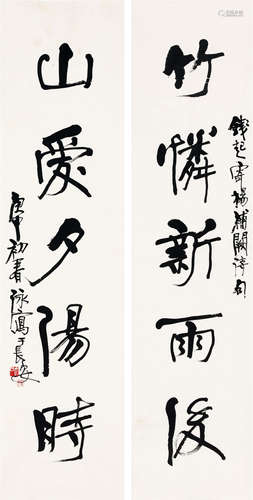 錢起寄楊補闕詩句
竹憐新雨後
山愛夕陽時
庚申初春詠寫于長安